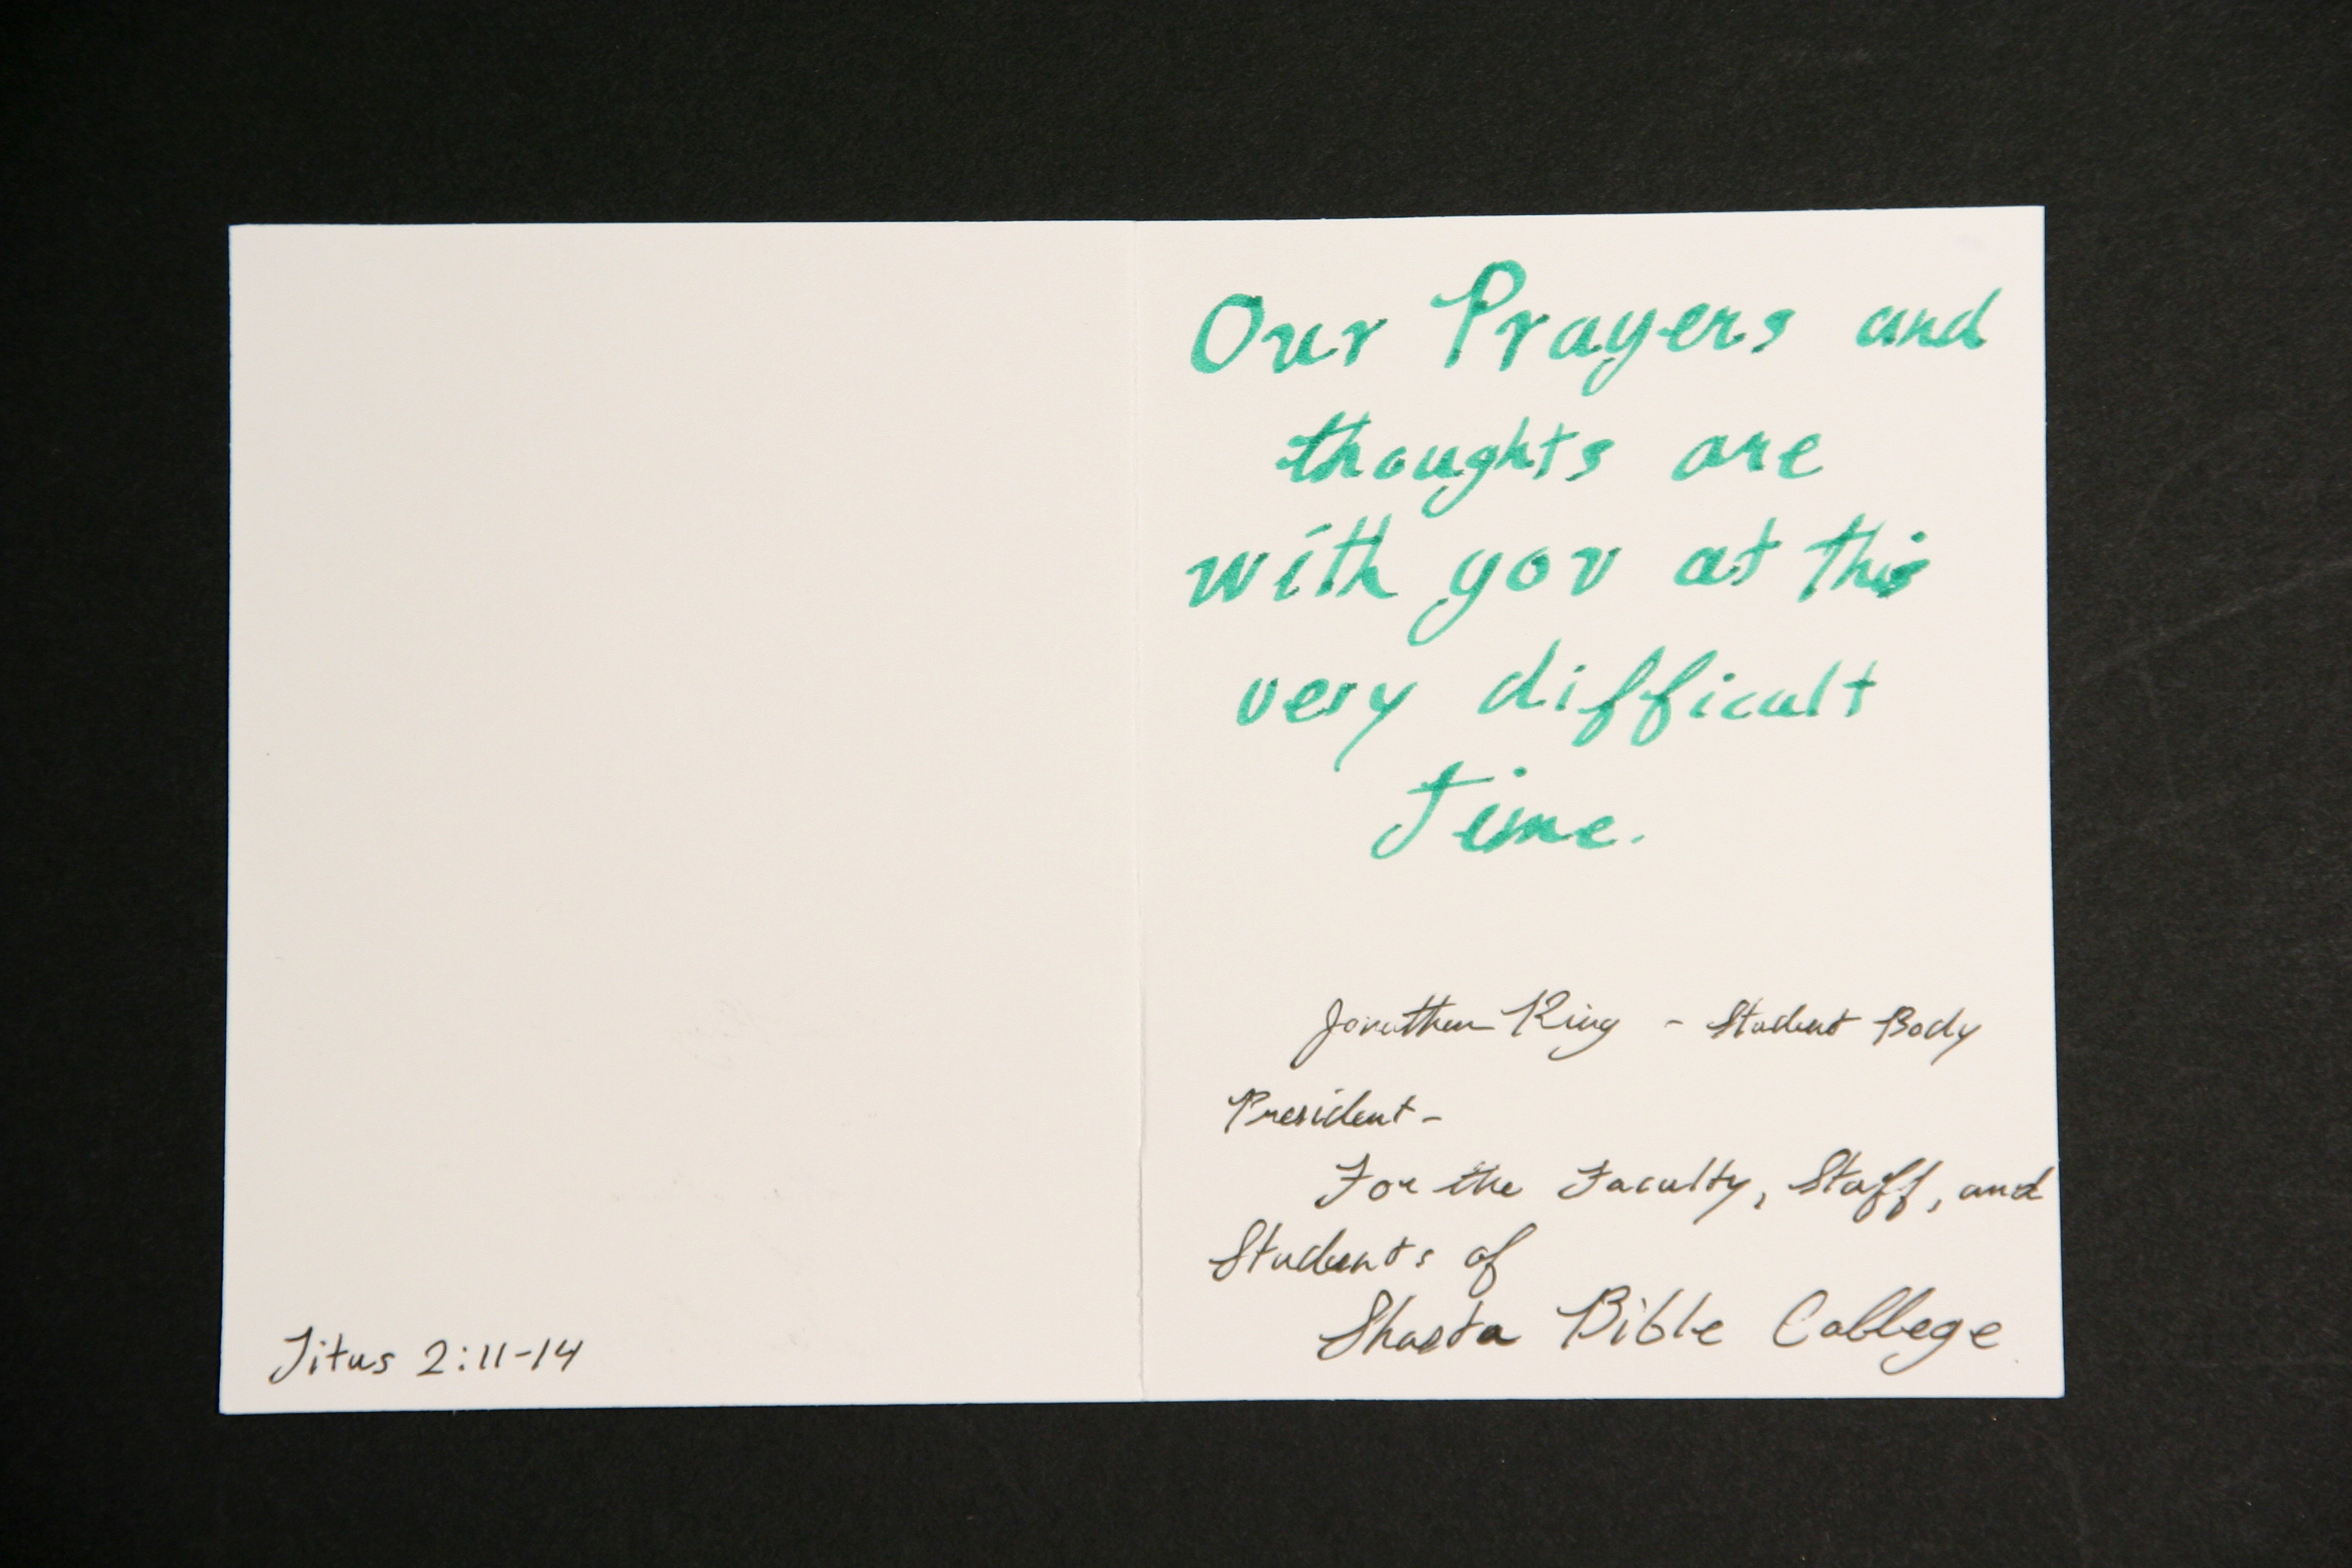 Our Prayers and
thoughts are
with you at this
very difficult
Time.
Jonathan King - Student Body
President-
For the Faculty, Staff, and
Students of
Shasta Bible College
Titus 2:11-14